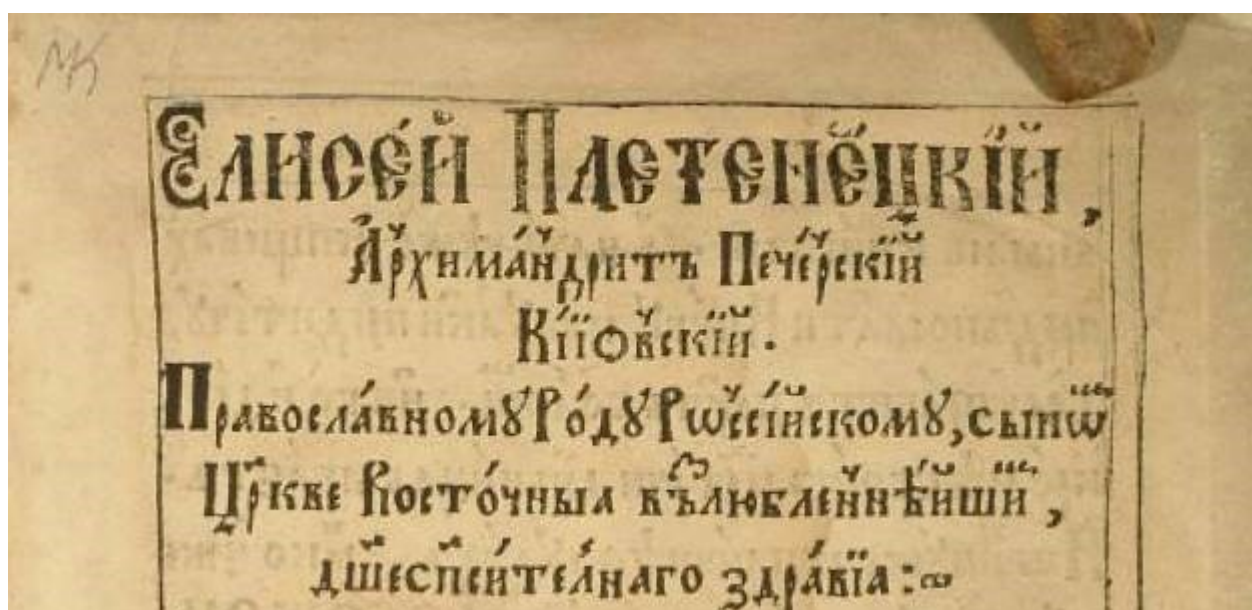 Елисе́й Плетене́цкїй,
А҆рхима́ндритъ Пече́рскїй
Кїїѡвскїй.
Правосла́вномꙋ Ро́дꙋ Рѡссі́йскомꙋ, сынѡⷨ
Цр҃кве Восто́чныѧ въⁿзлюбленнѣ́йшиⷨ,
дш҃еспси́телнаго здра́вїѧ: